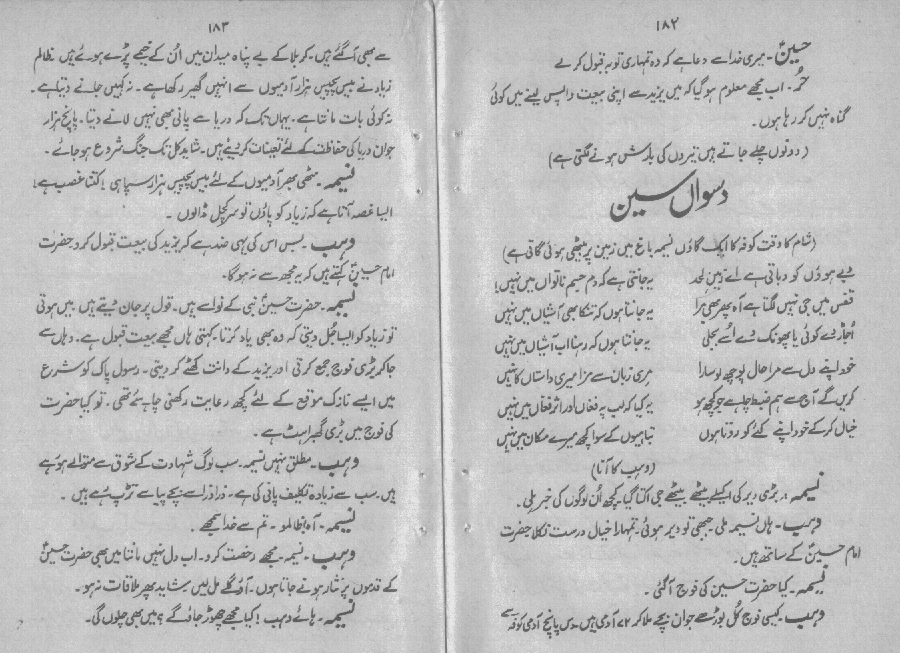 ۱۸۲
حسینؑ۔ میری خدا سے دعا ہے کہ وہ تمہاری توبہ قبول کرے
حُر۔ اب مجھے معلوم ہو گیا کہ میں یزید سے اپنی بیعت واپس لینے میں کوئی
گناہ نہیں کر رہا ہوں۔
(دونوں چلے جاتے ہیں تیروں کی بارش ہونے لگتی ہے)
دسواں سین
(شام کا وقت کوفہ کا ایک گاؤں نسیمہ باغ میں زمین پر بیٹھی ہوئی گاتی ہے)
دبے ہوؤں کو دباتی ہے اے زمین لحد یہ جانتی ہے کہ دم جسم ناتواں میں نہیں
قفس میں جی نہیں لگتا ہے آہ پھر بھی مرا یہ جانتا ہوں کہ تنکا بھی آشیاں میں نہیں
اُجاڑ دے کوئی یا پھونک دے اُسے بجلی یہ جانتا ہوں کہ رہنا اب آشیاں میں نہیں
خود اپنے دل سے مرا حال پوچھ لو سارا مری زبان سے مزا میری داستاں کا نہیں
کریں گے آج سے ہم ضبط چاہے جو کچھ ہو یہ کیا کہ لب پہ فغاں اور اثر فغاں میں نہیں
خیال کر کے خود اپنے کئے کو روتا ہوں تباہیوں کے سوا کچھ میرے مکاں میں نہیں
(وہب کا آنا)
نسیمہ۔ بڑی دیر کی اکیلے بیٹھے بیٹھے جی اکتا گیا۔ کچھ اُن لوگوں کی خبر ملی۔
وہب۔ ہاں نسیمہ ملی۔ جبھی تو دیر ہوئی۔ تمہارا خیال درست نکلا حضرت
امام حسینؑ کے ساتھ ہیں۔
نسیمہ۔ کیا حضرت حسین کی فوج آگئی۔
وہب۔ کیسی فوج کُل بوڑھے جوان بچے ملا کر ۷۲ آدمی ہیں۔ دس پانچ آدمی کوفہ سے
۱۸۳
سے بھی آگئے ہیں۔ کربلا کے بے پناہ میدان میں اُن کے خیمے پڑے ہوئے ہیں ظالم
زیاد نے بیس پچیس ہزار آدمیوں سے انہیں گھیر رکھا ہے۔ نہ کہیں جانے دیتا ہے۔
نہ کوئی بات مانتا ہے۔ یہاں تک کہ دریا سے پانی بھی نہیں لانے دیتا۔ پانچ ہزار
جوان دریا کی حفاظت کے لئے تعینات کر دیئے ہیں۔ شاید کل تک جنگ شروع ہو جائے۔
نسیمہ۔ مٹھی بھر آدمیوں کے لئے بیس پچیس ہزار سپاہی! کتنا غضب ہے!
ایسا غصہ آتا ہے کہ زیاد کو پاؤں تو سر کچل ڈالوں۔
وہب۔ بس اس کی یہی ضد ہے کہ یزید کی بیعت قبول کرو حضرت
امام حسینؑ کہتے ہیں کہ یہ مجھ سے نہ ہوگا۔
نسیمہ۔ حضرت حسینؑ نبی کے نواسے ہیں۔ قول پر جان دیتے ہیں۔ میں ہوتی
تو زیاد کو ایسا جُل دیتی کہ وہ بھی یاد کرتا۔ کہتی ہاں مجھے بیعت قبول ہے۔ وہاں سے
جا کر بڑی فوج جمع کرتی اور یزید کے دانت کھٹے کر دیتی۔ رسول پاک کو شرع
میں ایسے نازک موقع کے لئے کچھ رعایت رکھنی چاہئے تھی۔ تو کیا حضرت
کی فوج میں بڑی گھبراہٹ ہے۔
وہب۔ مطلق نہیں نسیمہ۔ سب لوگ شہادت کے شوق سے متوالے ہو رہے
ہیں۔ سب سے زیادہ تکلیف پانی کی ہے۔ ذرا ذرا سے بچے پیاسے تڑپ رہے ہیں۔
نسیمہ۔ آہ ظالمو۔ تم سے خدا سمجھے۔
وہب۔ نسیمہ۔ مجھے رخصت کرو۔ اب دل نہیں مانتا میں بھی حضرت حسینؑ
کے قدموں پر نثار ہونے جاتا ہوں۔ آؤ گلے مل لیں۔ شاید پھر ملاقات نہ ہو۔
نسیمہ۔ ہائے وہب! کیا مجھے چھوڑ جاؤ گے؟ میں بھی چلوں گی۔